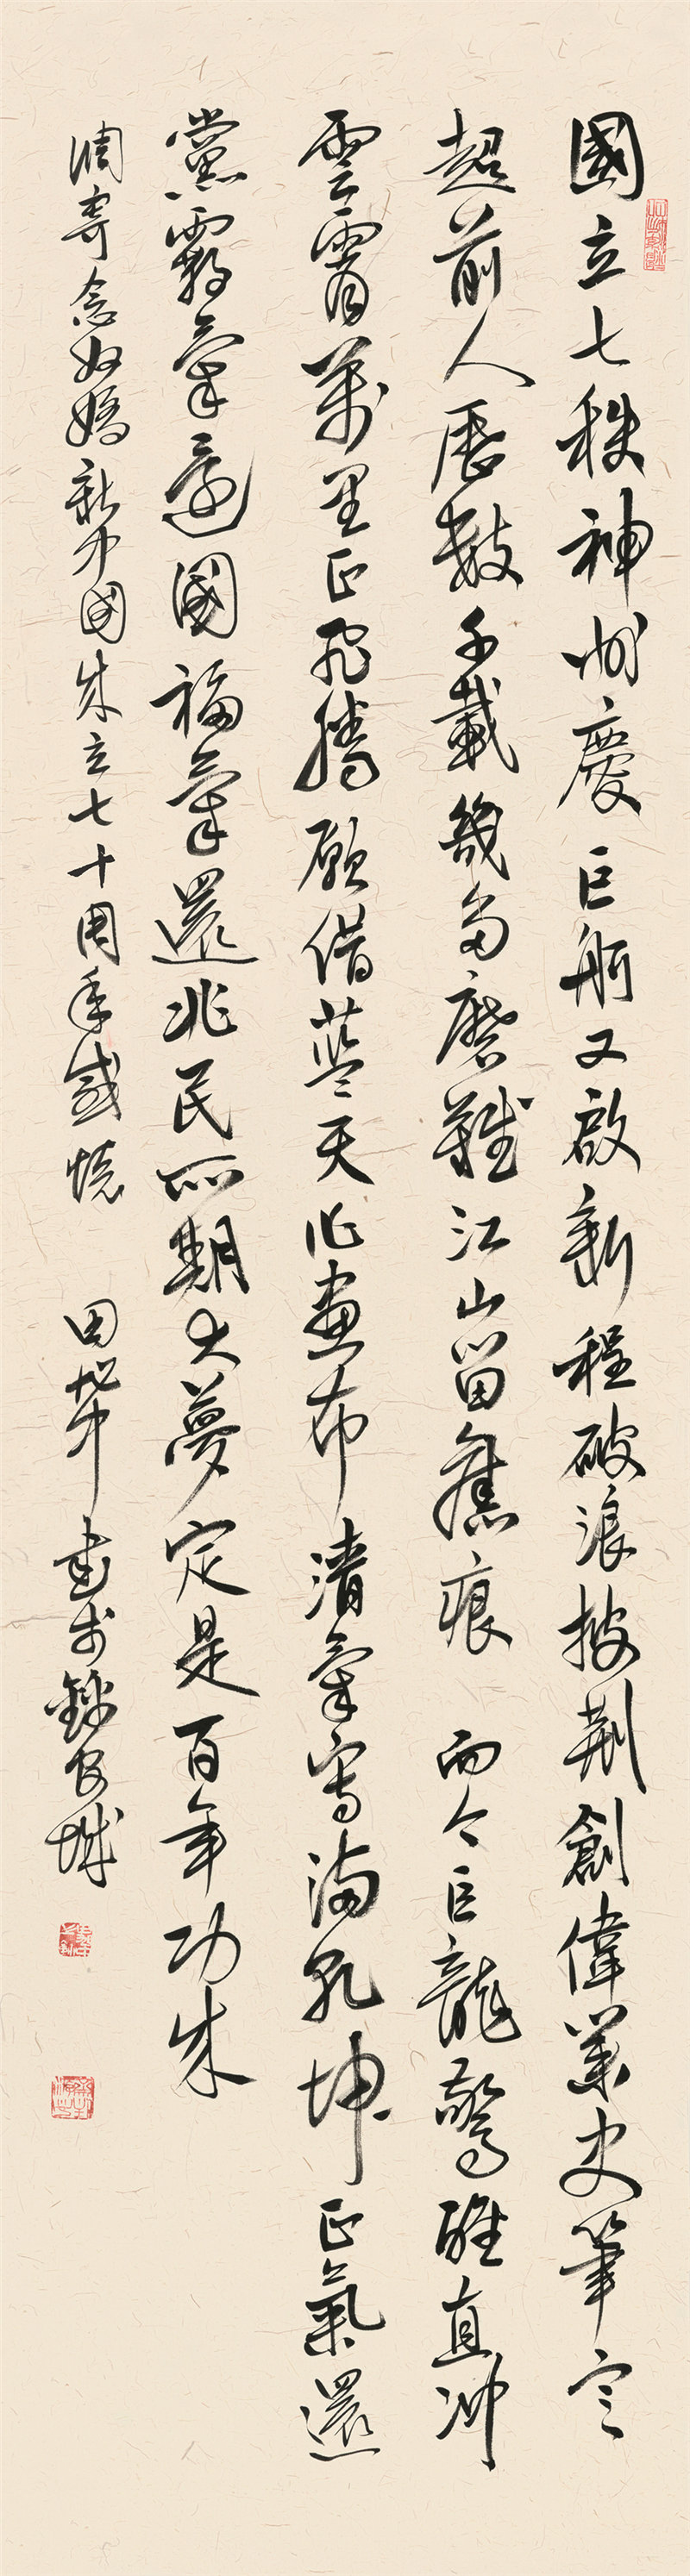 國立七秩神州慶巨舸又啟新程破浪披荊創偉業史筆定
超前人歷數千載幾多磨難江山留舊痕而今巨龍驚醒直沖
雲霄萬里正飛騰願借藍天作畫布清氣寫滿乾坤正氣還
黨霸氣還國福氣還兆民所期大夢定是百年功成
調寄念奴嬌新中國成立七十周年感懷 田 書於錢 城